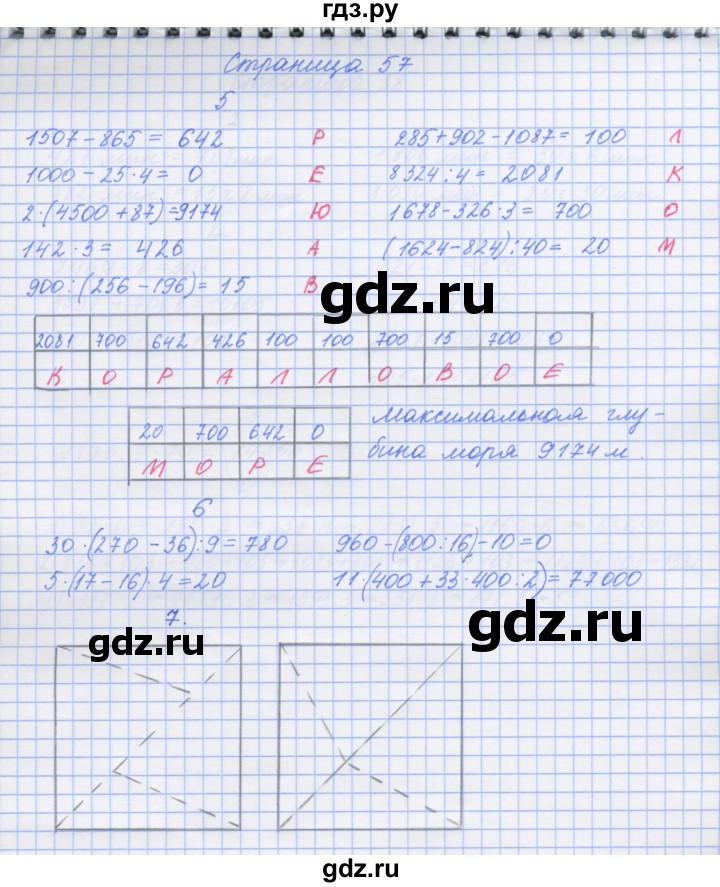 гдз.ру
Страница 57
5
1507 - 865 = 642 Р
285 + 902 - 1087 = 100 Л
1000 - 25 · 4 = 0 Е
8324 : 4 = 2081 К
2 · (4500 + 87) = 9174 Ю
1678 - 326 · 3 = 700 О
142 · 3 = 426 А
(1624 - 824) : 40 = 20 М
900 : (256 - 196) = 15 В
gdz.ru
2081 700 642 426 100 100 700 15 700 0
К О Р А Л Л О В О Е
20 700 642 0
М О Р Е
Максимальная глу-
бина моря 9174 м.
6
30 · (270 - 36) : 9 = 780
960 - (800 : 16) - 10 = 0
5 · (17 - 16) · 4 = 20
11 · (400 + 33 · 400 : 2) = 77000
7.
gdz.ru
gdz.ru
gdz.ru